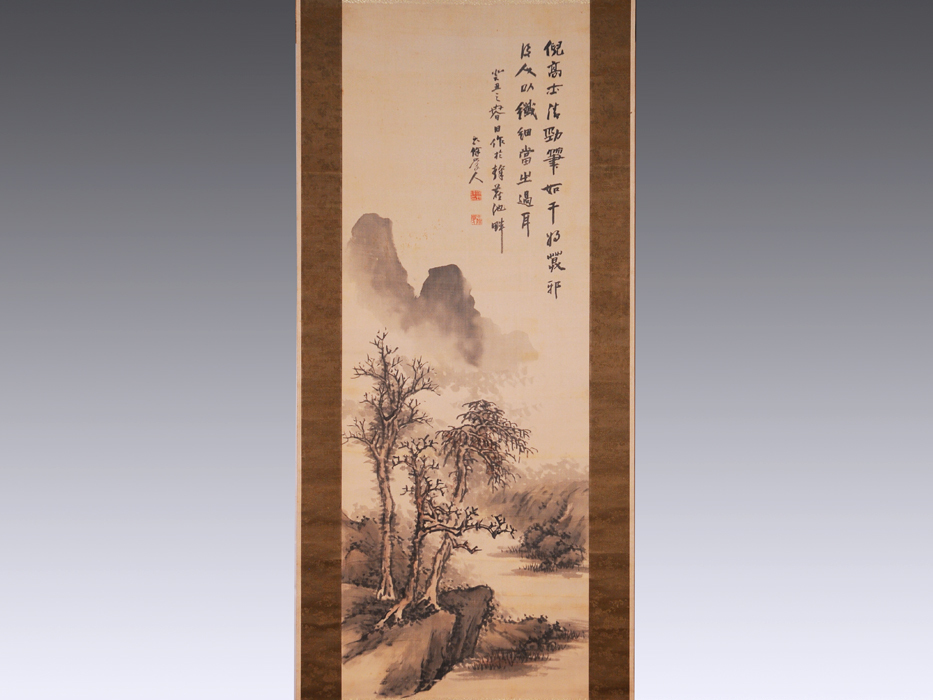 倪高士清勁筆如干將莫邪
後人以纖細當之過耳
癸丑之春日作於
池畔
人